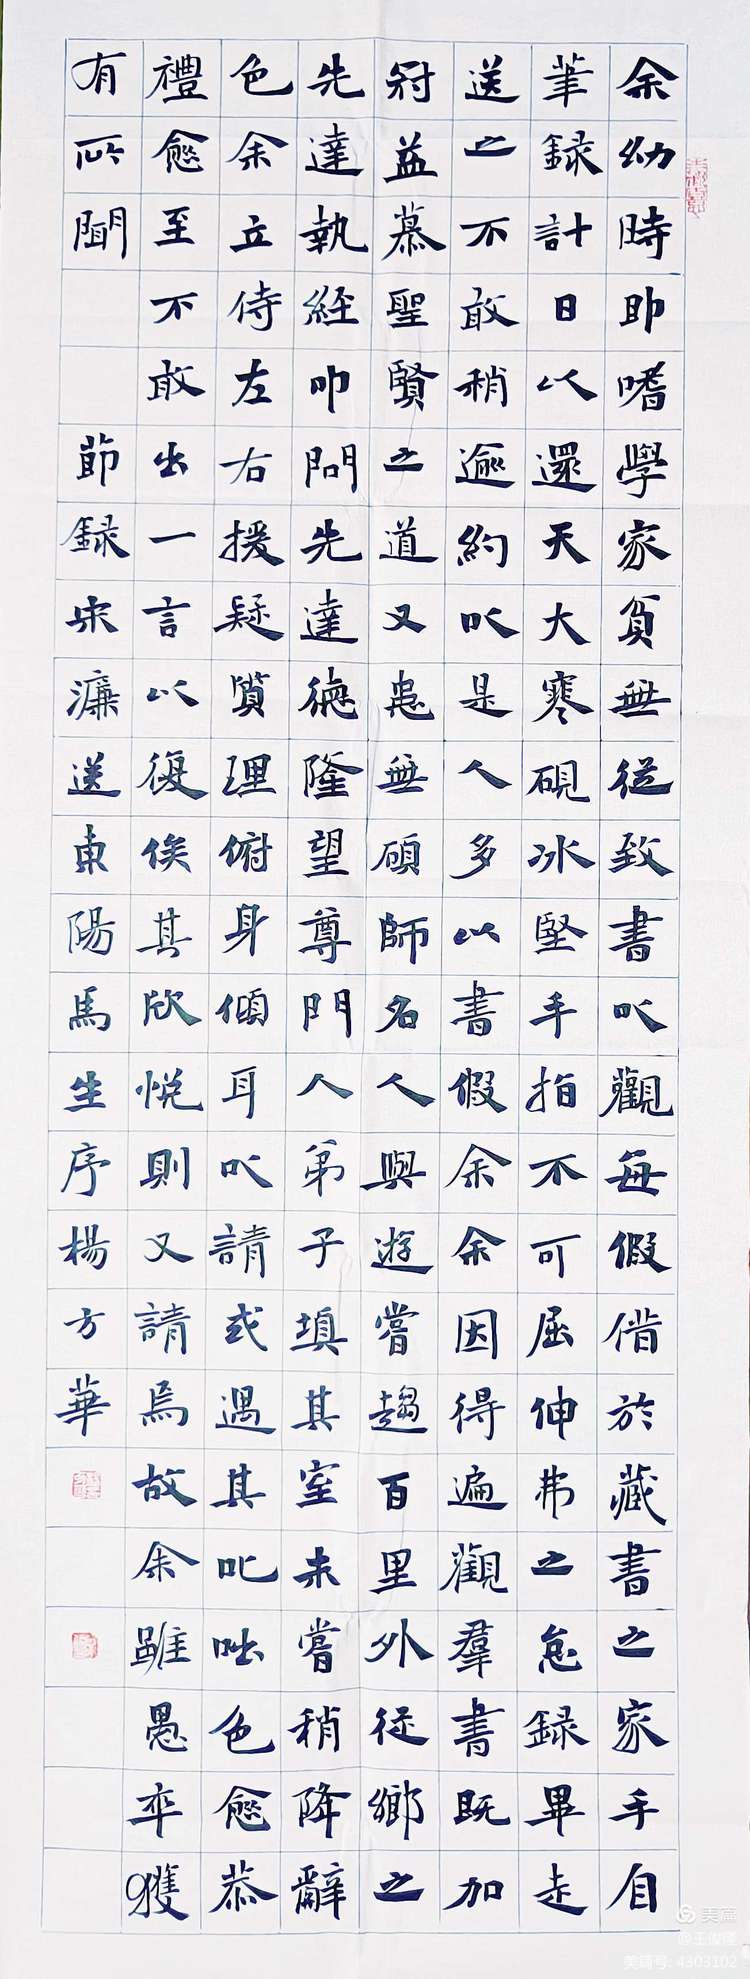 余幼時即嗜學家貧無從致書以觀每假借於藏書之家手自
筆録計日以還天大寒硯冰堅手指不可屈伸弗之怠録畢走
送之不敢稍逾約以是人多以書假余余因得遍觀羣書既加
冠益慕聖賢之道又患無碩師名人與遊嘗趨百里外從鄉之
先達執經叩問先達德隆望尊門人弟子填其室未嘗稍降辭
色余立侍左右援疑質理俯身傾耳以請或遇其叱咄色愈恭
禮愈至不敢出一言以復俟其欣悦則又請焉故余雖愚卒獲
有所聞
節録宋濂送東陽馬生序楊方華
美篇
@王俊驛
美篇号: 4303102